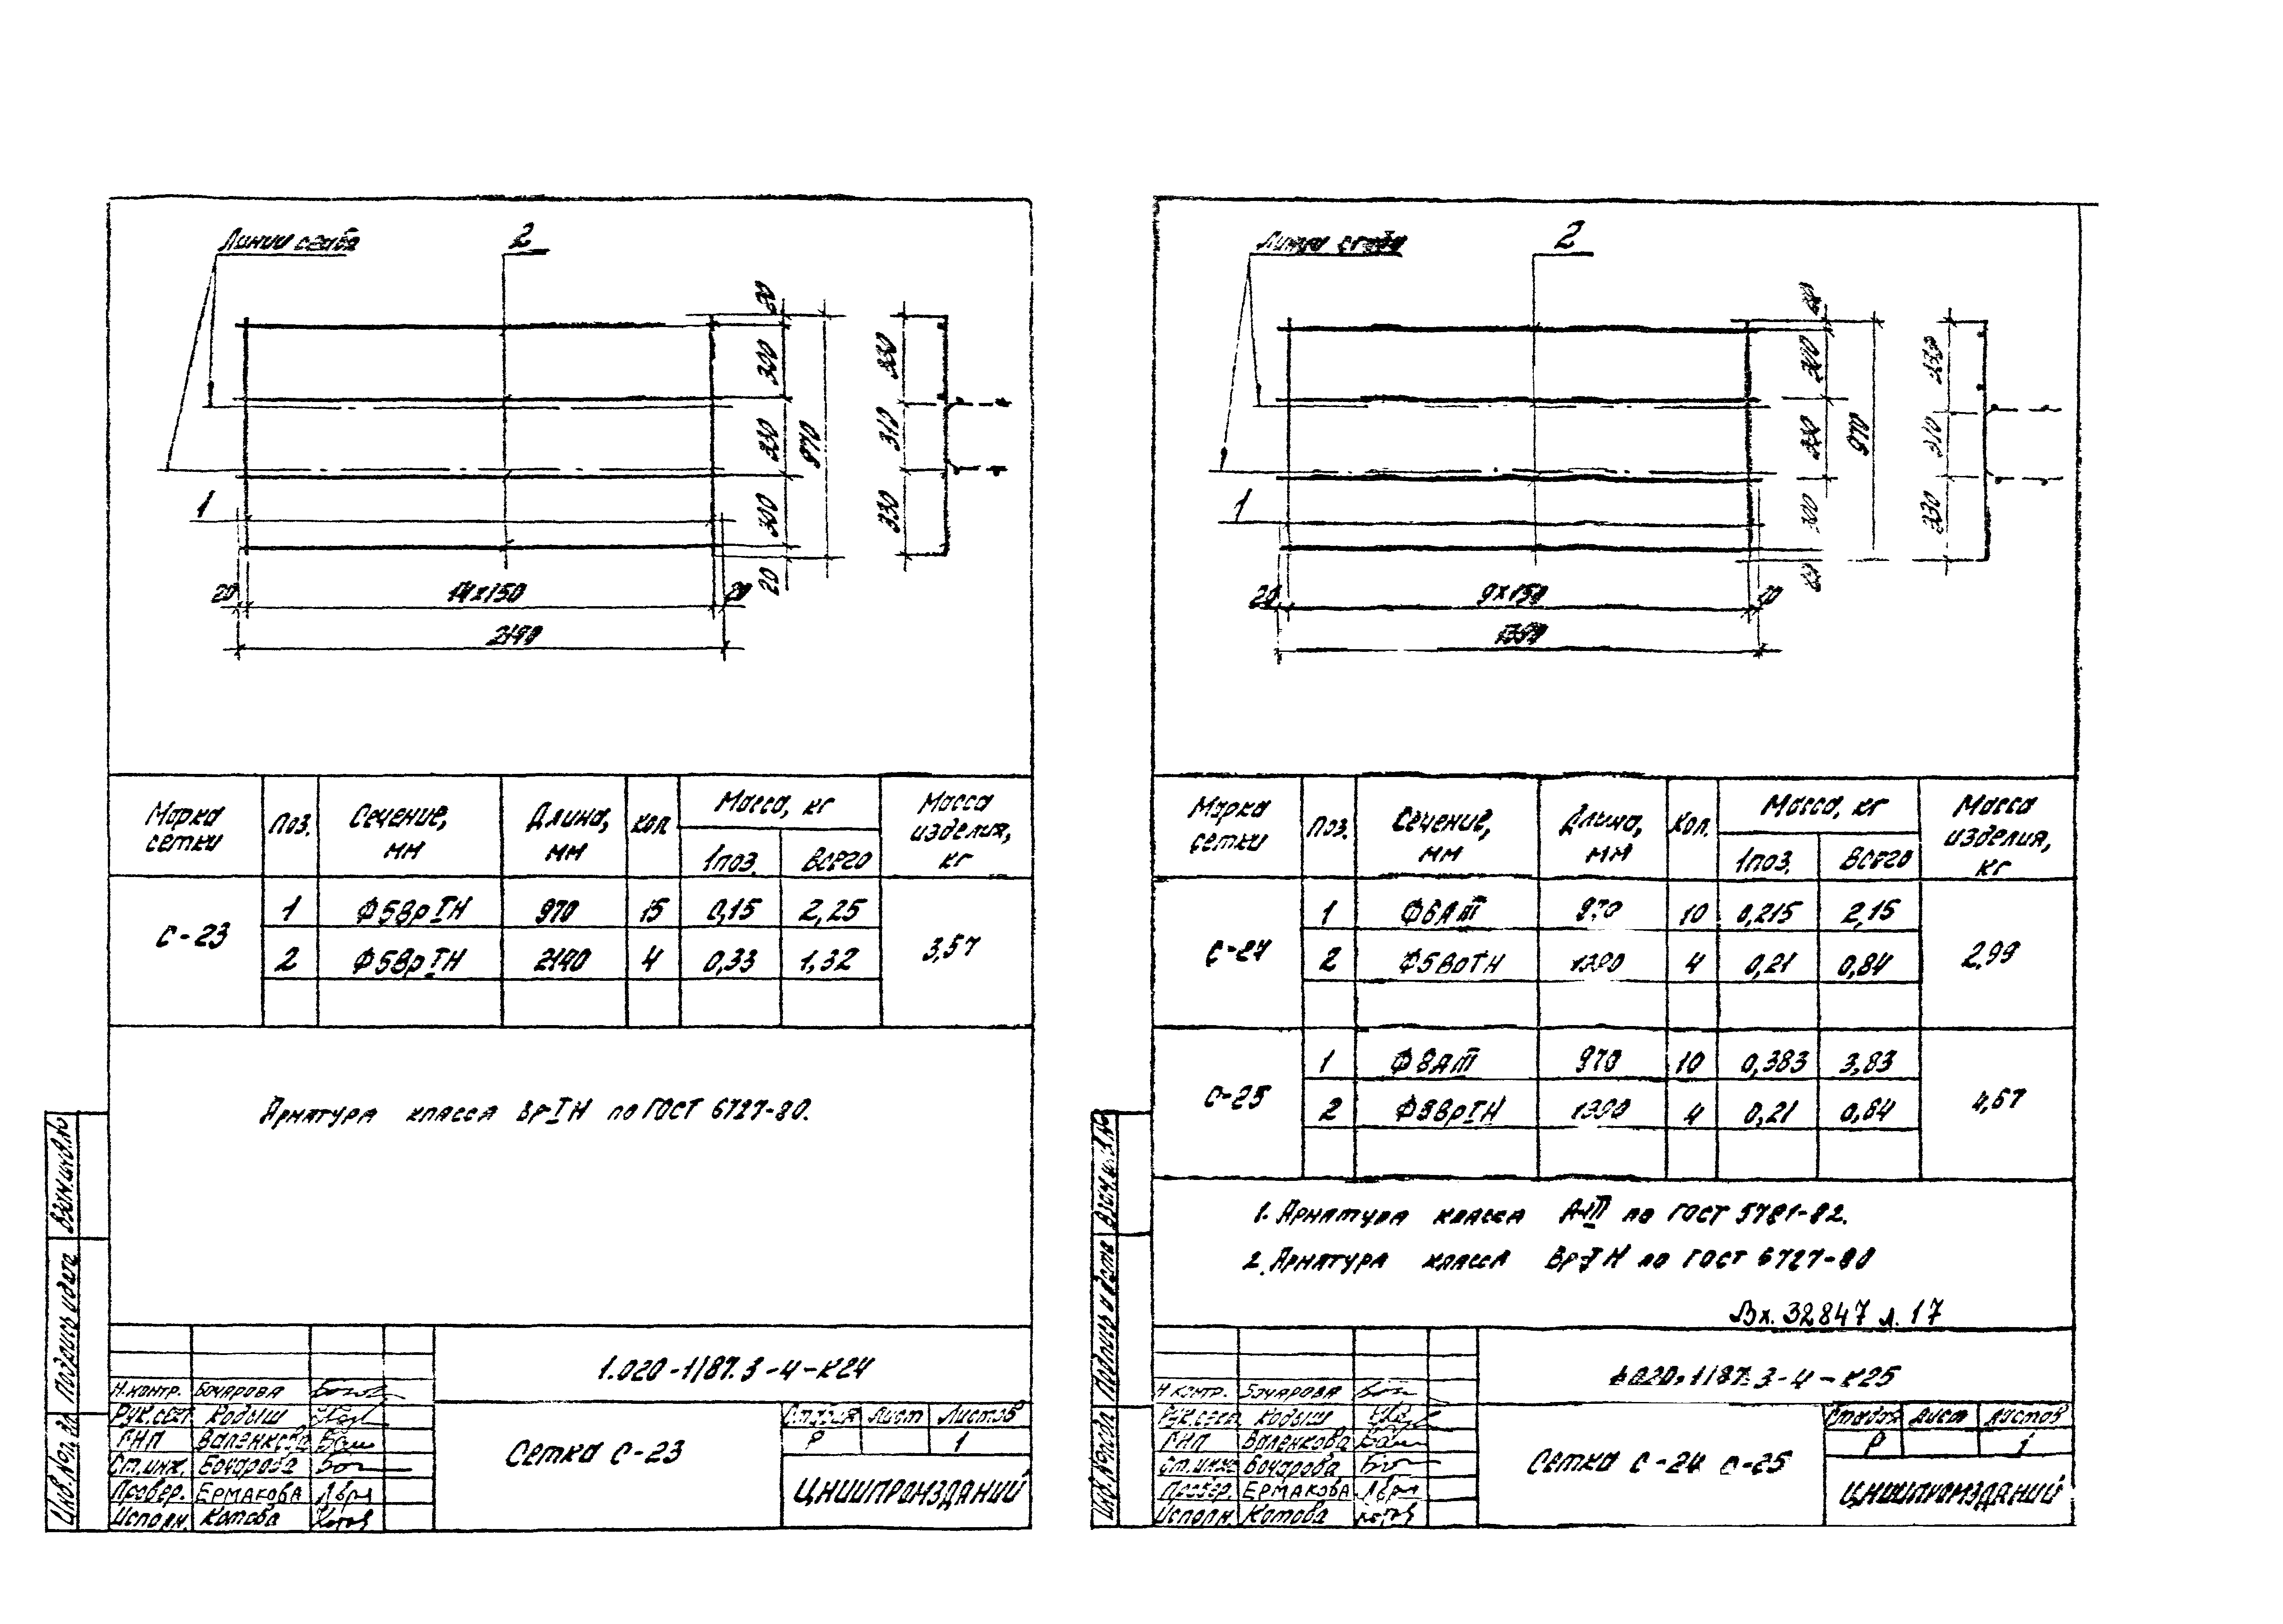 Линии сгиба
2
20
300
330
300
20
970
330
310
330
1
20
14х150
20
2140
Марка сетки
Поз.
Сечение, мм
Длина, мм
Кол.
Масса, кг
1поз.
Всего
Масса изделия, кг
С-23
1 Ф5ВрIН 970 15 0,15 2,25
2 Ф5ВрIН 2140 4 0,33 1,32
3,57
Арматура класса Вр-IН по ГОСТ 6727-80.
Взам.инв.№
Подпись и дата
Инв.№ подл.
1.020-1/87.3-4-К24
Н.контр. Бочарова
Рук.сект. Кодыш
ГНП Валенкова
Ст.инж. Бочарова
Провер. Ермакова
Исполн. Котова
Сетка С-23
Стадия Лист Листов
Р 1
ЦНИИПРОМЗДАНИЙ
Линии сгиба
2
300
330
300
970
330
310
330
1
20
9х150
20
1390
Марка сетки
Поз.
Сечение, мм
Длина, мм
Кол.
Масса, кг
1поз.
Всего
Масса изделия, кг
С-24
1 Ф6АIII 970 10 0,215 2,15
2 Ф5ВрIН 1390 4 0,21 0,84
2,99
С-25
1 Ф8АIII 970 10 0,383 3,83
2 Ф5ВрIН 1390 4 0,21 0,84
4,67
1. Арматура класса А-III по ГОСТ 5781-82.
2. Арматура класса Вр-IН по ГОСТ 6727-80
Вх. 32847 л. 17
Взам.инв.№
Подпись и дата
Инв.№ подл.
1.020-1/87.3-4-К25
Н.контр. Бочарова
Рук.сект. Кодыш
ГНП Валенкова
Ст.инж. Бочарова
Провер. Ермакова
Исполн. Котова
Сетка С-24 С-25
Стадия Лист Листов
Р 1
ЦНИИПРОМЗДАНИЙ